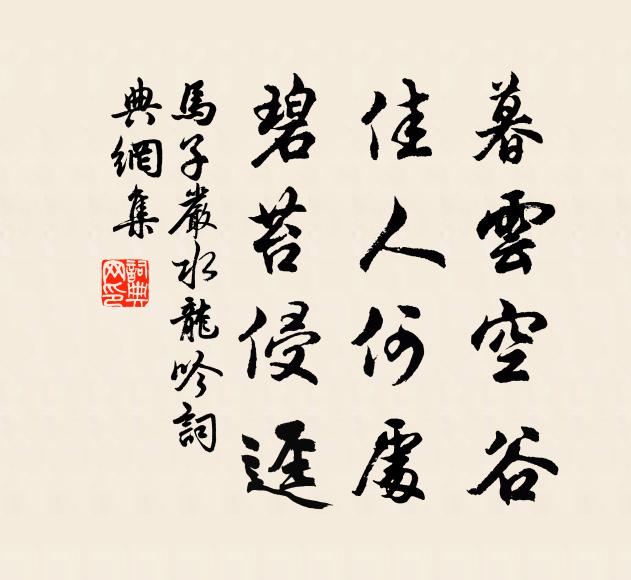 暮雲空谷
佳人何處
碧苔侵逕
馬子嚴水龍吟詞
典網集
詞典
网印